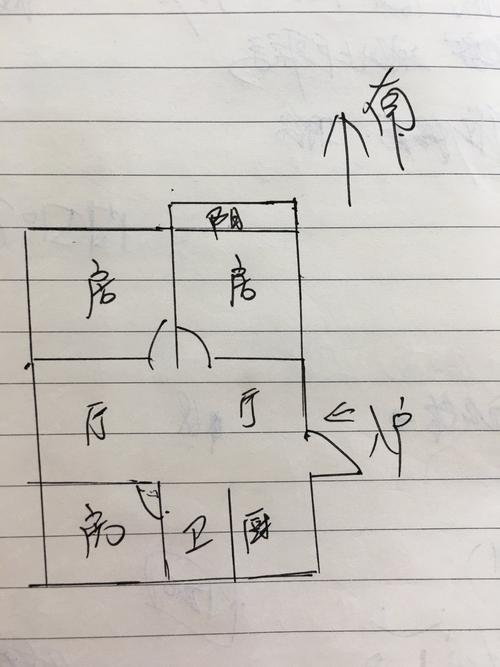 南
阳
房 房
厅 厅
入户
房 卫 厨